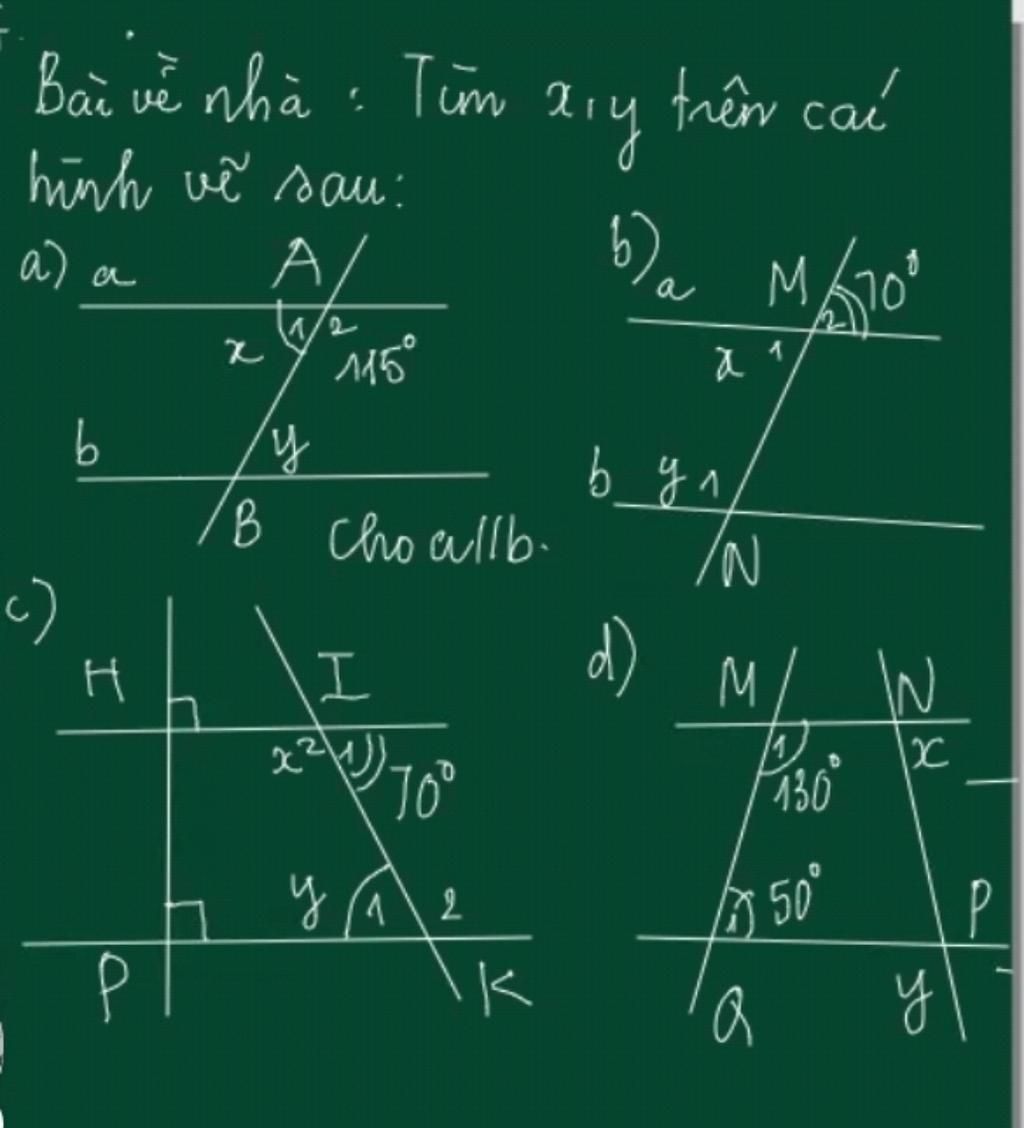 Bài về nhà : Tìm x,y trên các
hình vẽ sau:
a) a A
1 2
x 115°
b y
B Cho a//b.
b) a M 70°
2
x 1
b y 1
N
c)
H I
x 2 1 70°
y 1 2
P K
d) M N
1 x
130°
1 50° P
Q y